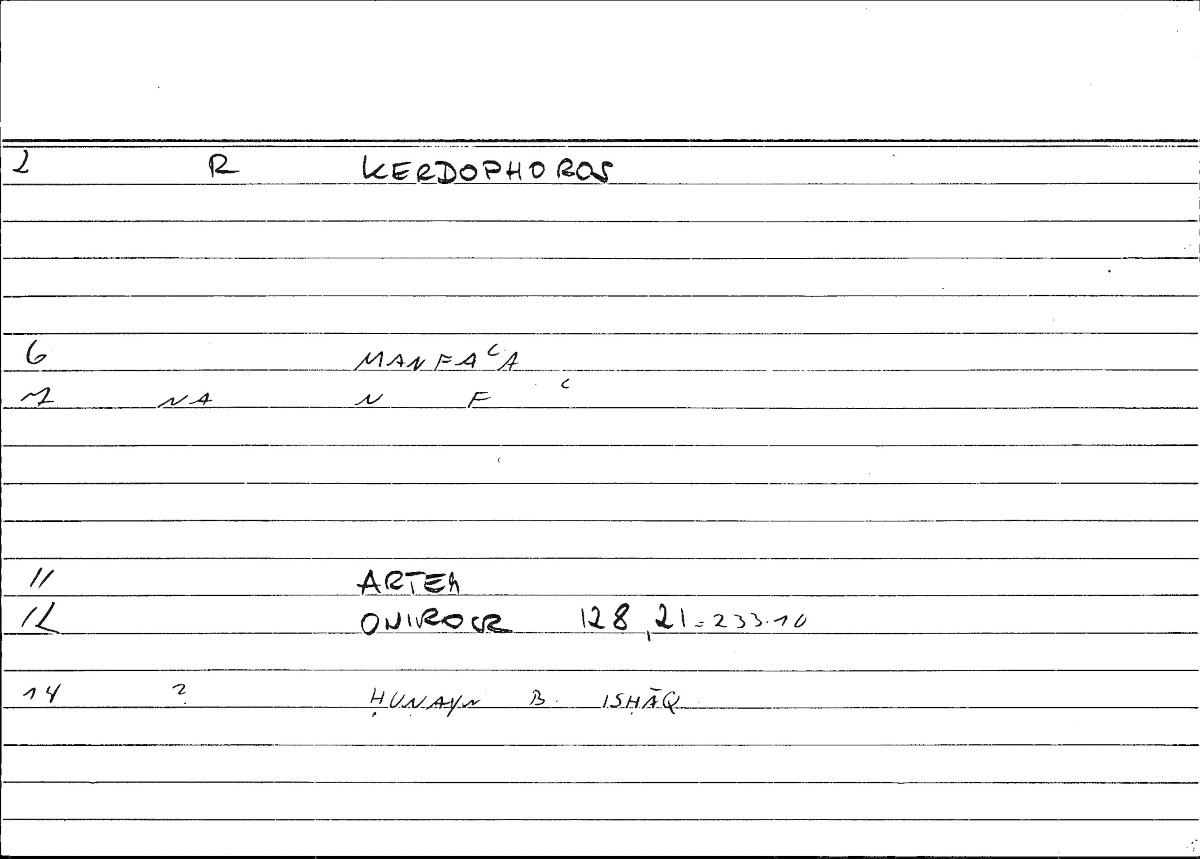 2 R KERDOPHOROS
6 MANFAʿA
7 NA N F ʿ
11 ARTEM
12 ONIROCR 128,21=233.10
14 2 ḤUNAYN B. ISḤĀQ